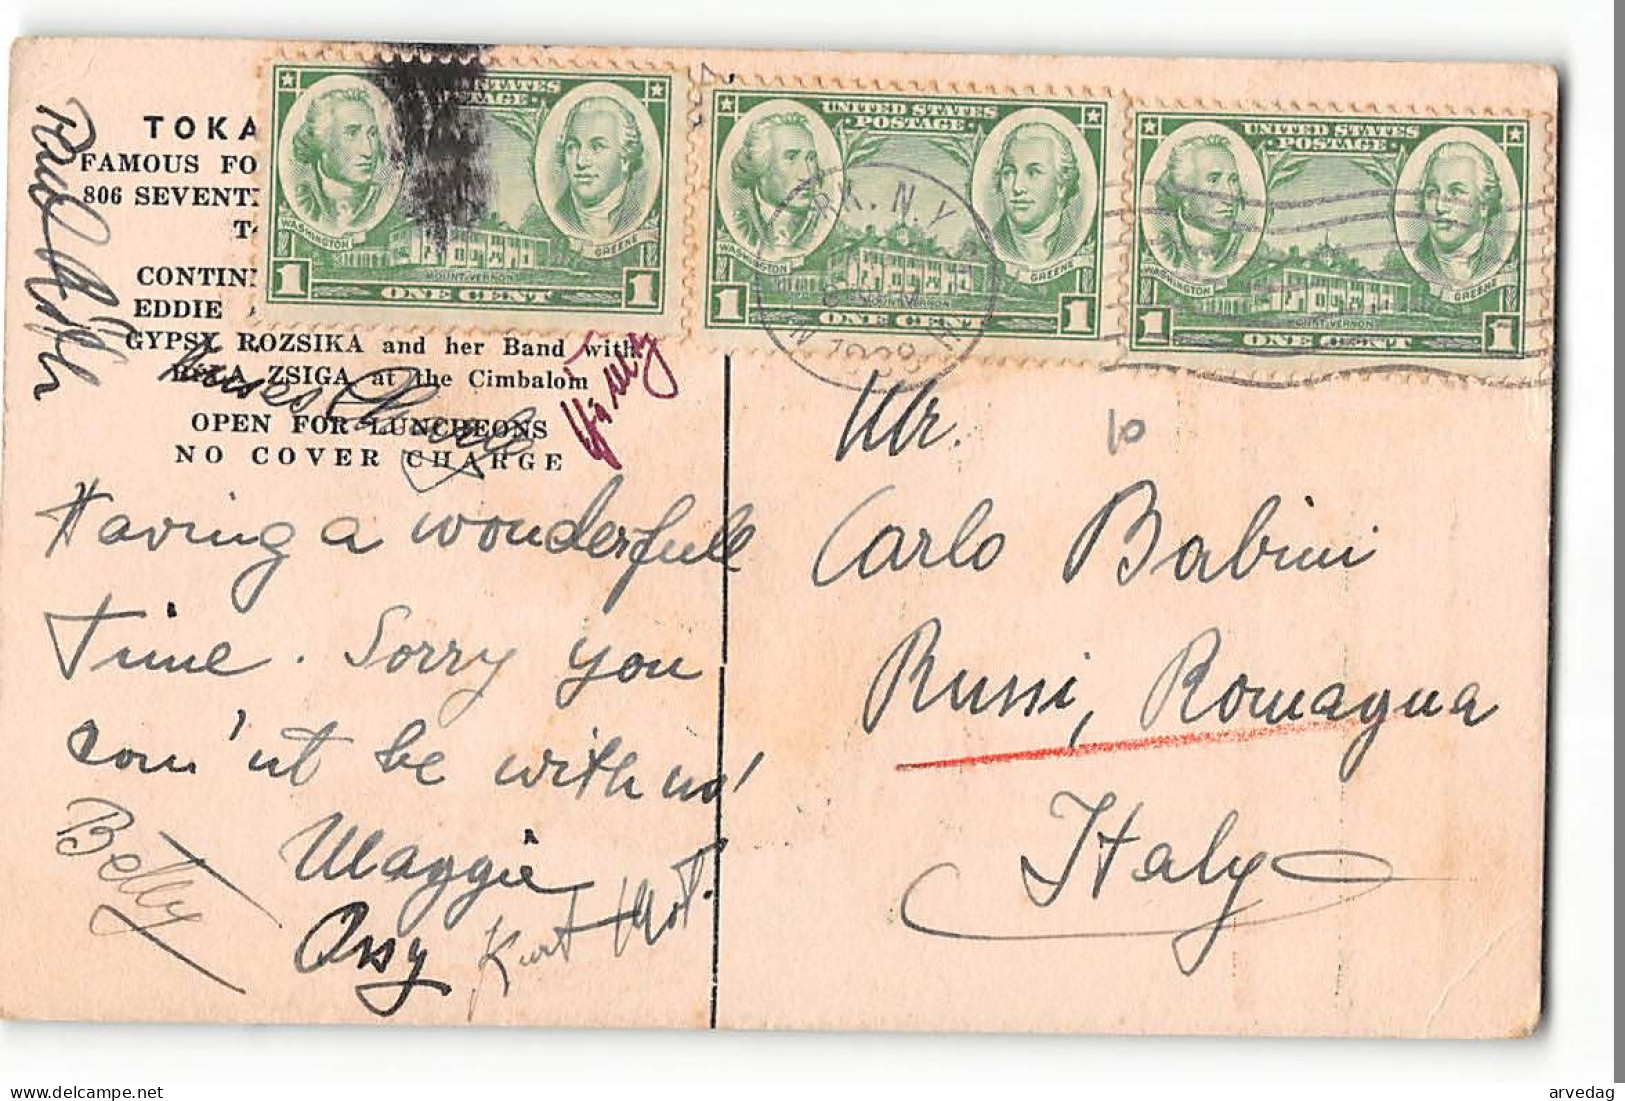 TOKA
FAMOUS FO
806 SEVENT
T
CONTIN
EDDIE
GYPSY ROZSIKA and her Band with
BELA ZSIGA at the Cimbalom
OPEN FOR LUNCHEONS
NO COVER CHARGE
UNITED STATES
POSTAGE
WASHINGTON
GREENE
MOUNT VERNON
1 ONE CENT 1
UNITED STATES
POSTAGE
WASHINGTON
GREENE
MOUNT VERNON
1 ONE CENT 1
UNITED STATES
POSTAGE
WASHINGTON
GREENE
MOUNT VERNON
1 ONE CENT 1
RK. N.Y.
Having a wonderfull
Time. Sorry you
com'nt be with us!
Maggie
Betty
Ossy Kurt
Mr.
10
Carlo Babini
Russi, Romagna
Italy
delcampe.net
arvedag